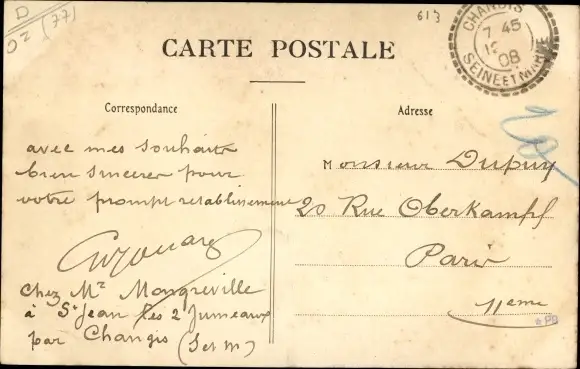 D
02 (77)
613
CHANGIS
7 45
08
SEINE-ET-MARNE
CARTE POSTALE
Correspondance
Adresse
avec mes souhaits
bien sincères pour
votre prompt retablissement
chez Mr Mongreville
à St Jean les 2 Jumeaux
par Changis (S et M)
Monsieur Dupuy
20 Rue Oberkampf
Paris
11eme